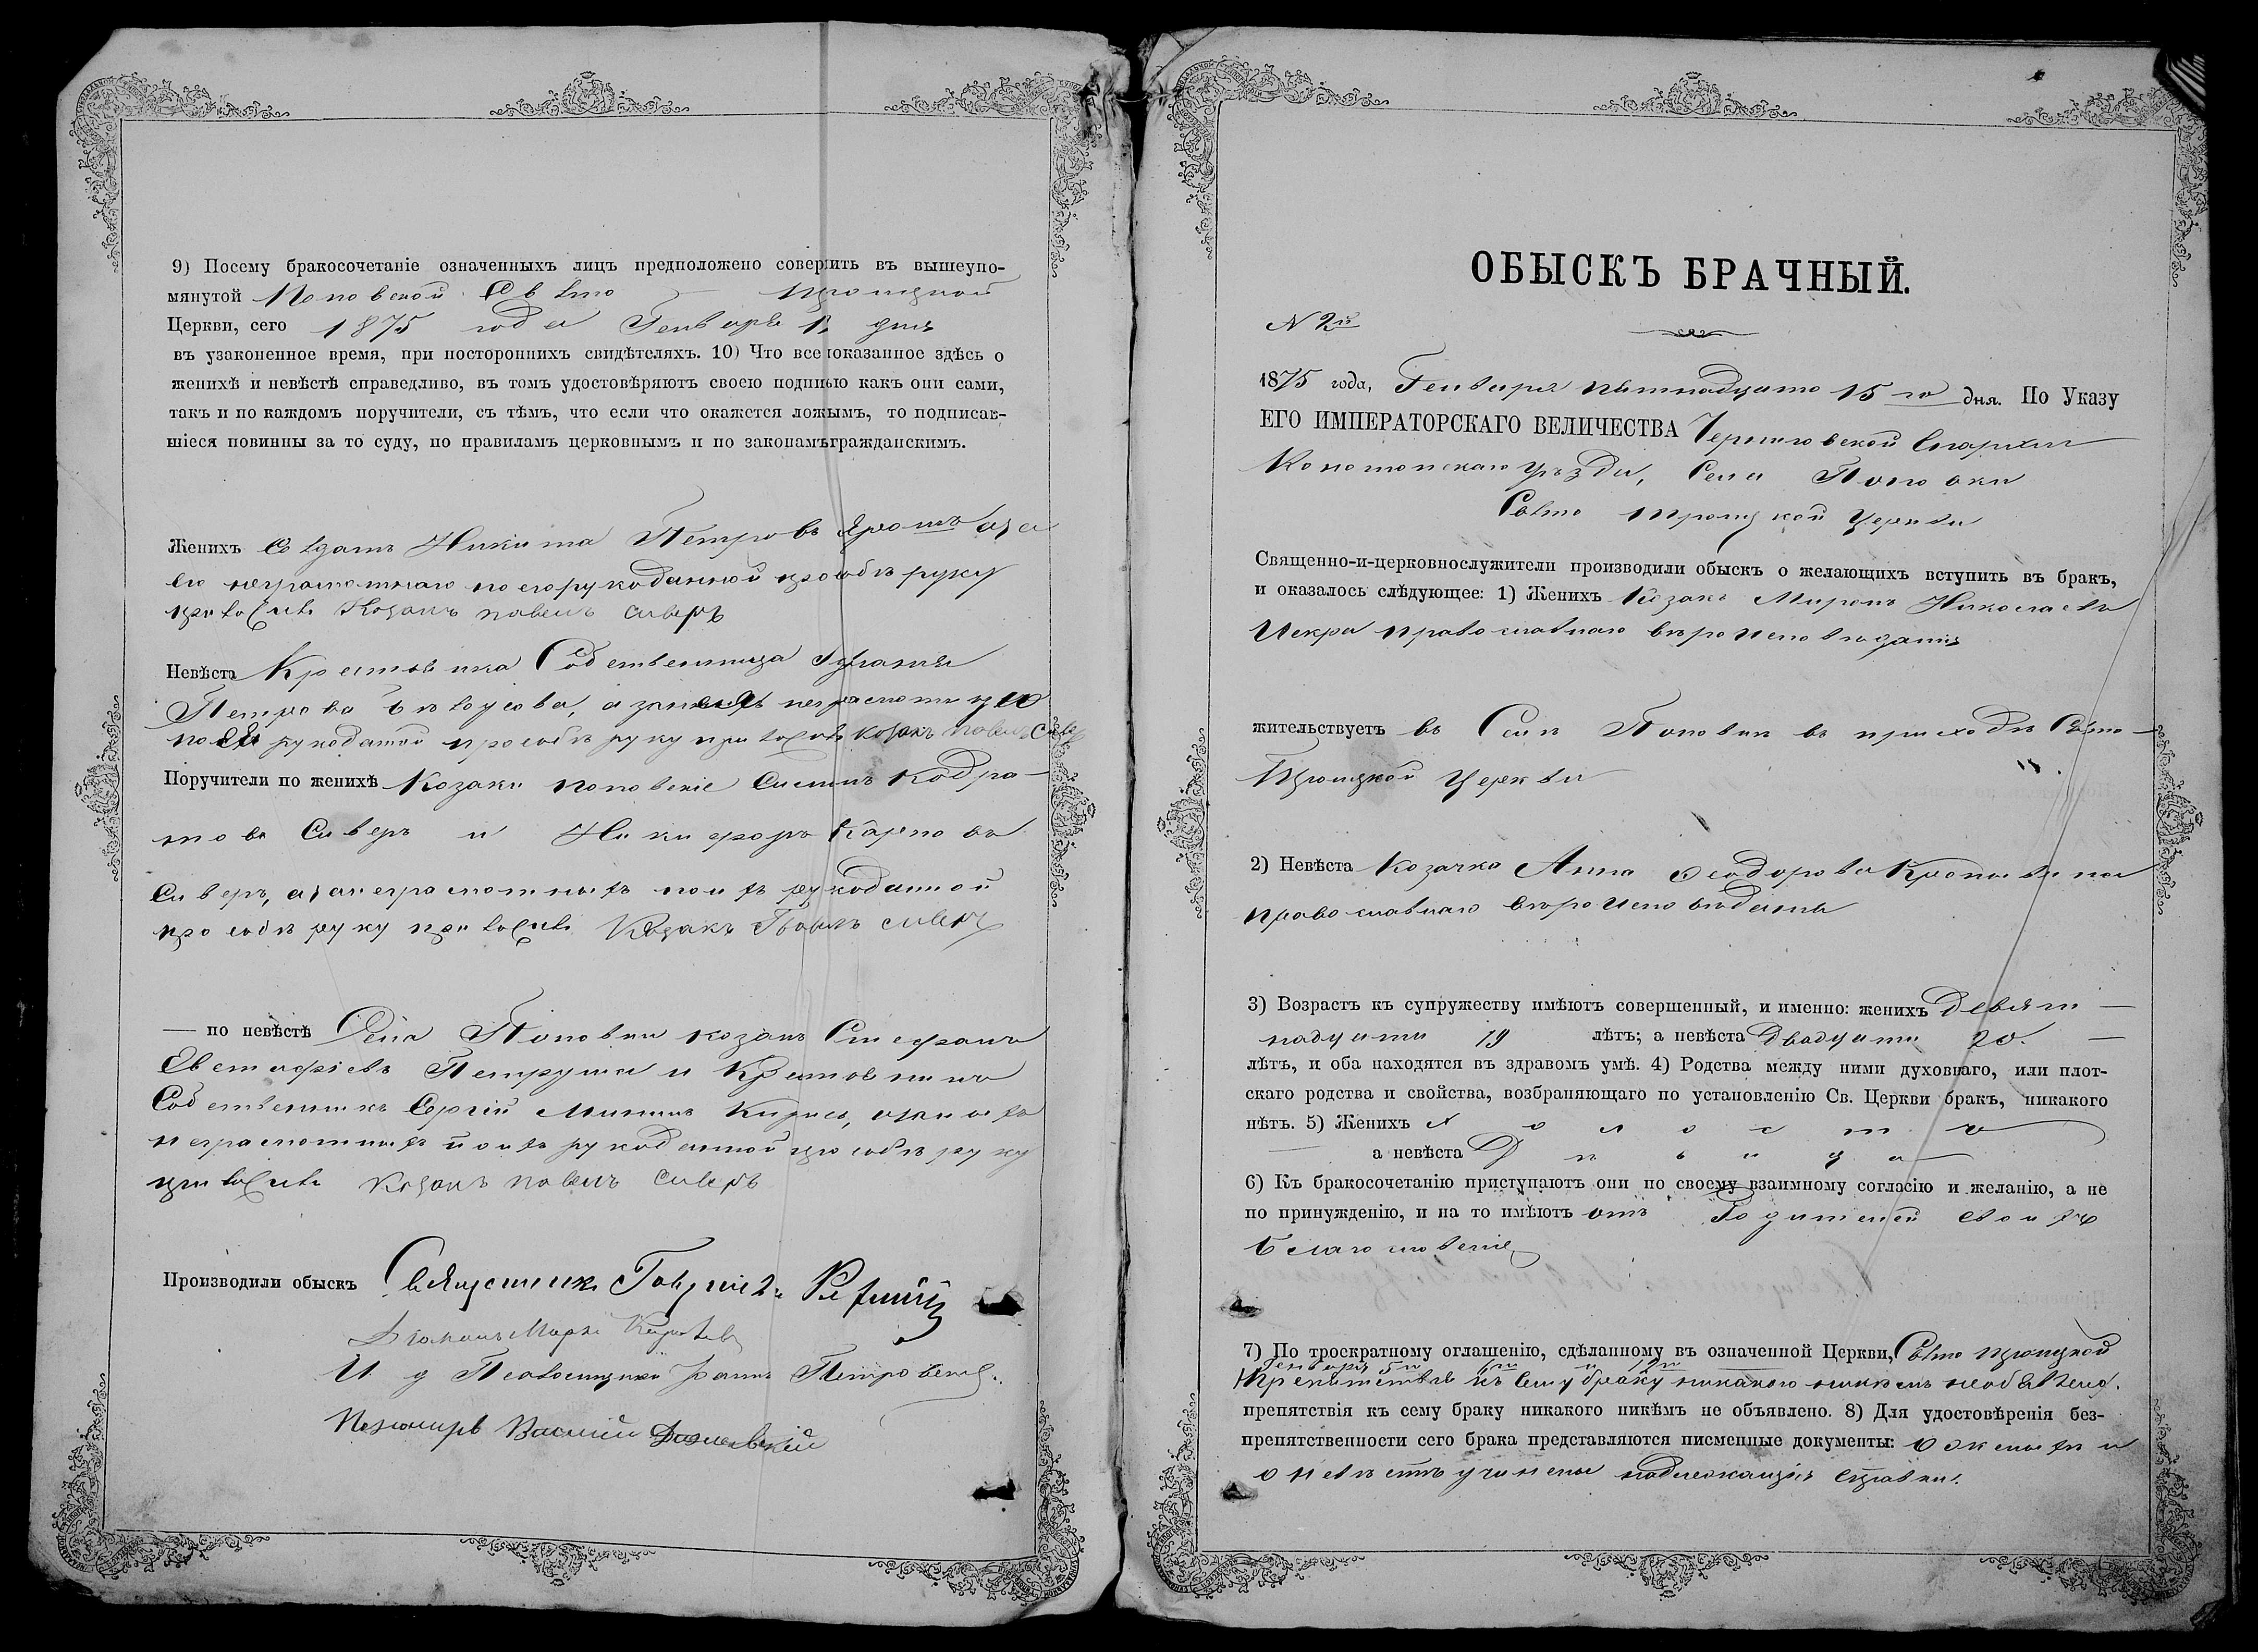 9) Посему бракосочетаніе означенныхъ лицъ предположено совершить въ вышеупо-
мянутой Поповской Свято - Троицкой
Церкви, сего 1875 года Генваря дня
въ узаконенное время, при постороннихъ свидѣтеляхъ. 10) Что все показанное здѣсь о
женихѣ и невѣстѣ справедливо, въ томъ удостовѣряютъ своею подписью какъ они сами,
такъ и по каждомъ поручители, съ тѣмъ, что если что окажется ложнымъ, то подписав-
шіеся повинны за то суду, по правиламъ церковнымъ и по законамъ гражданскимъ.
Женихъ Никита Петровъ а за
его неграмотнаго по его рукоданной прозьбѣ руку
приложилъ Козакъ Павелъ Сиверъ
Невѣста Собственница
Петрова а за неграмотную
по ея рукоданной прозьбѣ руку приложилъ козакъ Павелъ Сиверъ
Поручители по женихѣ Козаки Поповскіе Симонъ Кодра-
товъ Сиверъ и Никифоръ Карповъ
Сиверъ, а за неграмотныхъ по ихъ рукоданной
прозьбѣ руку приложилъ Козакъ Павелъ Сиверъ
— по невѣстѣ Села Поповки козакъ Стефанъ
Евстафіевъ Петруша и
Собственникъ Сергій Мининъ а за ихъ
неграмотныхъ по ихъ рукоданной прозьбѣ руку
приложилъ козакъ Павелъ Сиверъ
Производили обыскъ Священникъ
Діаконъ Марко
И. д. Псаломщика Іоаннъ Петровскій.
Пономарь Василій
ОБЫСКЪ БРАЧНЫЙ.
N 2й
1875 года, Генваря пятнадцато 15 го дня. По Указу
ЕГО ИМПЕРАТОРСКАГО ВЕЛИЧЕСТВА Черниговской Епархіи
Конотопскаго уѣзда, Села Поповки
Свято Троицкой Церкви
Священно-и-церковнослужители производили обыскъ о желающихъ вступить въ бракъ,
и оказалось слѣдующее: 1) Женихъ Козакъ Миронъ Николаевъ
Искра православнаго вѣроисповѣданія
жительствуетъ въ Селѣ Поповкѣ въ приходѣ Свято-
Троицкой Церкви
2) Невѣста Козачка Анна Ѳеодорова
православнаго вѣроисповѣданія
3) Возрастъ къ супружеству имѣютъ совершенный, и именно: женихъ Девят-
надцати 19 лѣтъ; а невѣста Двадцати 20. —
лѣтъ, и оба находятся въ здравомъ умѣ. 4) Родства между ними духовнаго, или плот-
скаго родства и свойства, возбраняющаго по установленію Св. Церкви бракъ, никакого
нѣтъ. 5) Женихъ Холостъ
а невѣста Дѣвица
6) Къ бракосочетанію приступаютъ они по своему взаимному согласію и желанію, а не
по принужденію, и на то имѣютъ отъ Родителей своихъ
благословеніе
7) По троекратному оглашенію, сдѣланному въ означенной Церкви, Свято Троицкой
Генваря 5го 6го и 12го
Препятствія къ сему браку никакого никѣмъ необъявлено.
препятствія къ сему браку никакого никѣмъ не объявлено. 8) Для удостовѣренія без-
препятственности сего брака представляются писменные документы: о женихѣ и
о невѣстѣ учинены надлежащія справки.